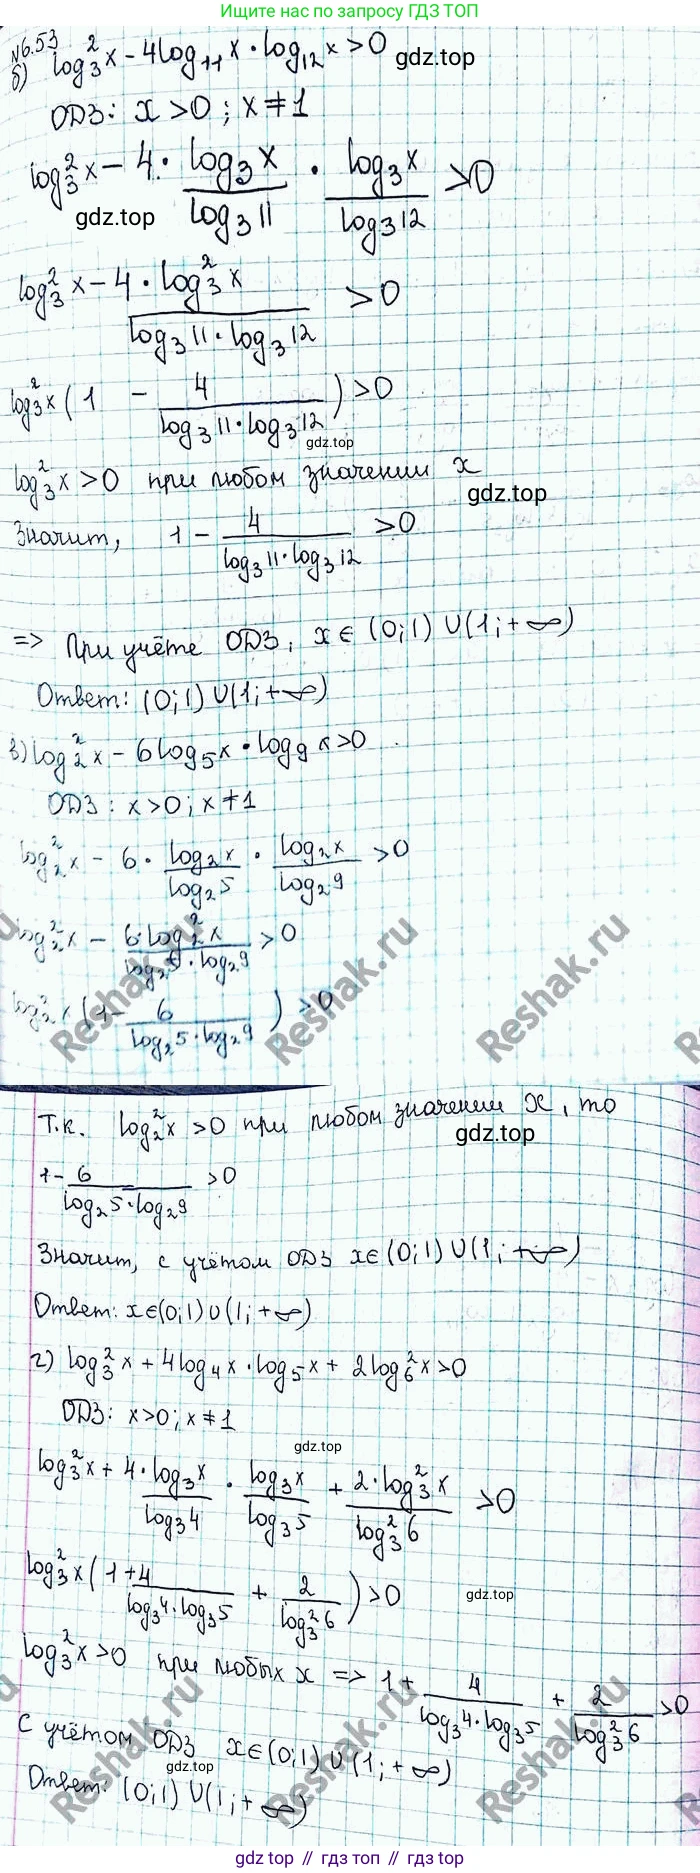 Ищите нас по запросу ГДЗ ТОП
№6.53
б) log₃²x - 4log₁₁x · log₁₂x > 0
gdz.top
ОДЗ: x > 0; x ≠ 1
log₃²x - 4 · log₃x / log₃11 · log₃x / log₃12 > 0
gdz.top
log₃²x - 4 · log₃²x / log₃11 · log₃12 > 0
log₃²x (1 - 4 / log₃11 · log₃12) > 0
gdz.top
log₃²x > 0 при любом значении x
gdz.top
Значит, 1 - 4 / log₃11 · log₃12 > 0
=> При учёте ОДЗ, x ∈ (0; 1) ∪ (1; +∞)
Ответ: (0; 1) ∪ (1; +∞)
в) log₂²x - 6log₅x · log₉x > 0
ОДЗ: x > 0; x ≠ 1
log₂²x - 6 · log₂x / log₂5 · log₂x / log₂9 > 0
log₂²x - 6 · log₂²x / log₂5 · log₂9 > 0
log₂²x (1 - 6 / log₂5 · log₂9) > 0
Reshak.ru
Reshak.ru
Reshak.ru
Т.к. log₂²x > 0 при любом значении x, то
gdz.top
1 - 6 / log₂5 · log₂9 > 0
Значит, с учётом ОДЗ x ∈ (0; 1) ∪ (1; +∞)
Ответ: x ∈ (0; 1) ∪ (1; +∞)
г) log₃²x + 4log₄x · log₅x + 2log₆²x > 0
ОДЗ: x > 0; x ≠ 1
gdz.top
log₃²x + 4 · log₃x / log₃4 · log₃x / log₃5 + 2 · log₃²x / log₃²6 > 0
log₃²x (1 + 4 / log₃4 · log₃5 + 2 / log₃²6) > 0
gdz.top
log₃²x > 0 при любых x => 1 + 4 / log₃4 · log₃5 + 2 / log₃²6 > 0
С учётом ОДЗ x ∈ (0; 1) ∪ (1; +∞)
Ответ: (0; 1) ∪ (1; +∞)
Reshak.ru
Reshak.ru
Reshak.ru
gdz.top // gdz.top // gdz.top